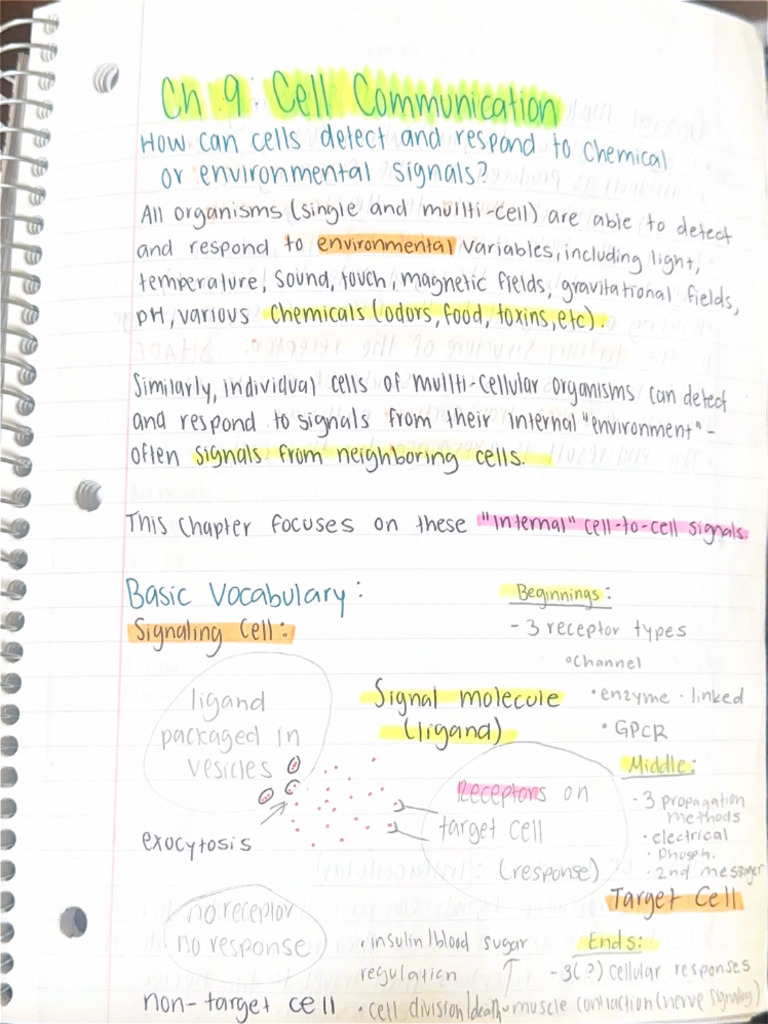 Ch 9 Cell Communication
How can cells detect and respond to chemical
or environmental signals?
All organisms (single and mullti-cell) are able to detect
and respond to environmental variables, including light,
temperature, sound, touch, magnetic fields, gravitational fields,
pH, various chemicals (odors, food, toxins, etc).
Similarly, individual cells of mullti-cellular organisms can detect
and respond to signals from their internal "environment"-
often signals from neighboring cells.
This chapter focuses on these "internal" cell-to-cell signals.
Basic Vocabulary:
Signaling Cell:
ligand
packaged in
vesicles
exocytosis
Signal molecule
(ligand)
Receptors on
target cell
(response)
Target Cell
Beginnings:
- 3 receptor types
°channel
• enzyme - linked
• GPCR
Middle:
- 3 propagation
methods
• electrical
• phosph.
• 2nd messager
no receptor
no response
non-target cell
Ends:
- 3(?) cellular responses
• insulin/blood sugar
regulation
• cell division/death • muscle contraction (nerve signaling)